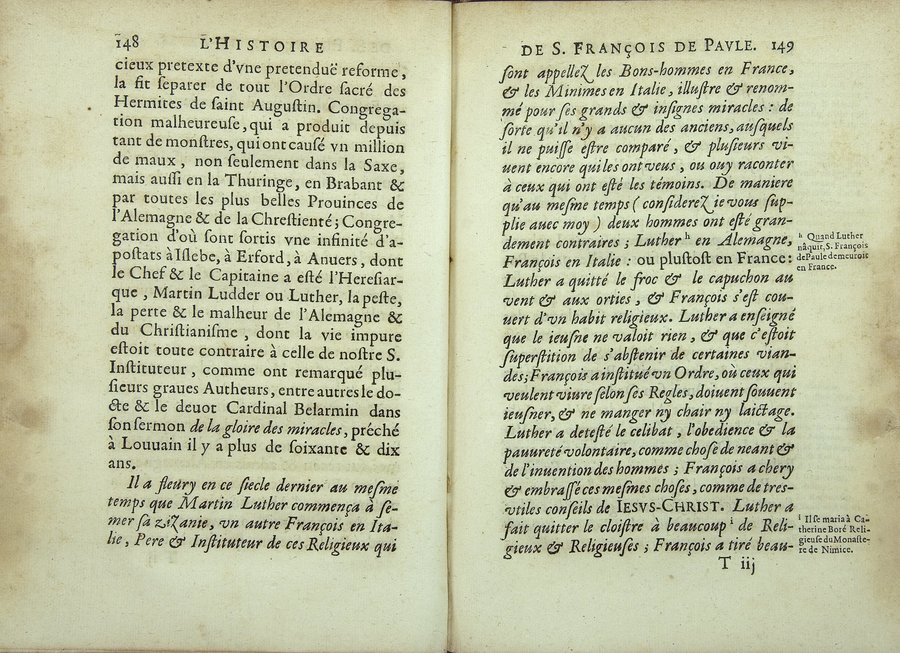 148 L'HISTOIRE
cieux pretexte d'vne pretenduë reforme,
la fit ſeparer de tout l'Ordre ſacré des
Hermites de ſaint Auguſtin. Congrega-
tion malheureuſe, qui a produit depuis
tant de monſtres, qui ont cauſé vn million
de maux, non ſeulement dans la Saxe,
mais auſſi en la Thuringe, en Brabant &
par toutes les plus belles Prouinces de
l'Alemagne & de la Chreſtienté; Congre-
gation d'où ſont ſortis vne infinité d'a-
poſtats à Iſlebe, à Erford, à Anuers, dont
le Chef & le Capitaine a eſté l'Hereſiar-
que, Martin Ludder ou Luther, la peſte,
la perte & le malheur de l'Alemagne &
du Chriſtianiſme, dont la vie impure
eſtoit toute contraire à celle de noſtre S.
Inſtituteur, comme ont remarqué plu-
ſieurs graues Autheurs, entre autres le do-
cte & le deuot Cardinal Belarmin dans
ſon ſermon de la gloire des miracles, préché
à Louuain il y a plus de ſoixante & dix
ans.
Il a fleury en ce ſiecle dernier au meſme
temps que Martin Luther commença à ſe-
mer ſa zizanie, vn autre François en Ita-
lie, Pere & Inſtituteur de ces Religieux qui
DE S. FRANÇOIS DE PAVLE. 149
ſont appellez les Bons-hommes en France,
& les Minimes en Italie, illuſtre & renom-
mé pour ſes grands & inſignes miracles : de
ſorte qu'il n'y a aucun des anciens, auſquels
il ne puiſſe eſtre comparé, & pluſieurs vi-
uent encore qui les ont veus, ou ouy raconter
à ceux qui ont eſté les témoins. De maniere
qu'au meſme temps (conſiderez ie vous ſup-
plie auec moy) deux hommes ont eſté gran-
dement contraires ; Luther h en Alemagne,
François en Italie : ou pluſtoſt en France:
Luther a quitté le froc & le capuchon au
vent & aux orties, & François s'eſt cou-
uert d'vn habit religieux. Luther a enſeigné
que le ieuſne ne valoit rien, & que c'eſtoit
ſuperſtition de s'abſtenir de certaines vian-
des; François a inſtitué vn Ordre, où ceux qui
veulent viure ſelon ſes Regles, doiuent ſouuent
ieuſner, & ne manger ny chair ny laictage.
Luther a deteſté le celibat, l'obedience & la
pauureté volontaire, comme choſe de neant &
de l'inuention des hommes ; François a chery
& embraſſé ces meſmes choſes, comme de tres-
vtiles conſeils de IESVS-CHRIST. Luther a
fait quitter le cloiſtre à beaucoup i de Reli-
gieux & Religieuſes ; François a tiré beau-
T iij
h Quand Luther
nâquit, S. François
de Paule demeuroit
en France.
i Il ſe maria à Ca-
therine Boré Reli-
gieuſe du Monaſte-
re de Nimice.